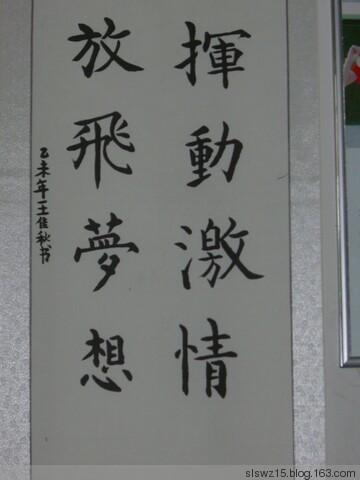 揮動激情
放飛夢想
乙未年王佳秋书
slswz15.blog.163.com